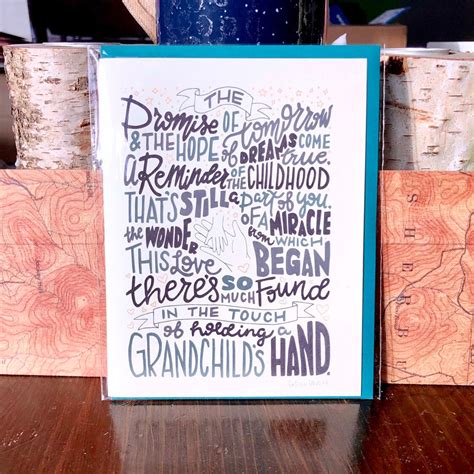 THE
Promise OF tomorrow
& THE HOPE of DREAMS COME true.
A Reminder OF THE CHILDHOOD
THAT'S STILL a part of you.
the WONDER OF A MIRACLE
from WHICH
THIS Love BEGAN
there's SO MUCH Found
IN THE TOUCH
of holding a
GRANDCHILD'S HAND.
SHERBU